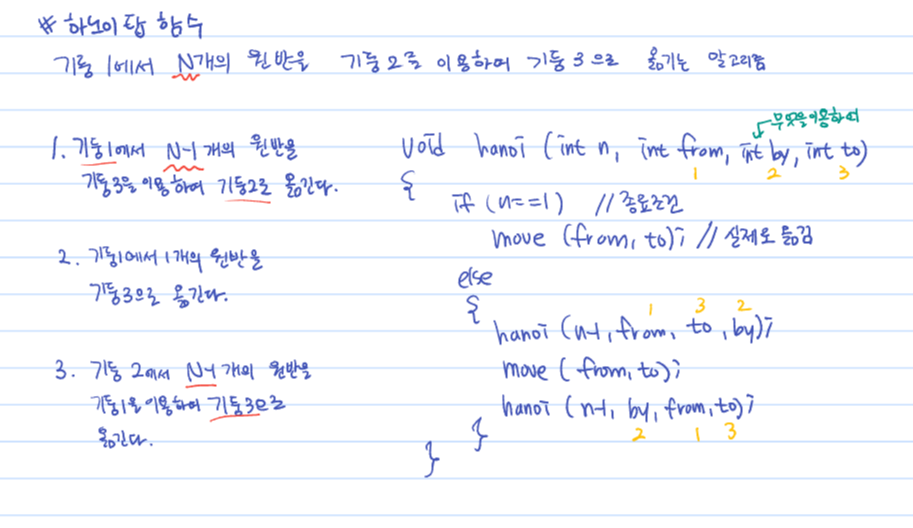 # 하노이 탑 함수
기둥 1에서 N개의 원반을 기둥 2를 이용하여 기둥 3으로 옮기는 알고리즘
1. 기둥1에서 N-1 개의 원반을
기둥3을 이용하여 기둥2로 옮긴다.
2. 기둥1에서 1개의 원반을
기둥3으로 옮긴다.
3. 기둥 2에서 N-1 개의 원반을
기둥1을 이용하여 기둥3으로
옮긴다.
무엇을 이용하여
void hanoi (int n, int from, int by, int to)
1 2 3
{
if (n==1) // 종료조건
move (from, to); // 실제로 옮김
else
{
1 3 2
hanoi (n-1, from, to, by);
move (from, to);
hanoi (n-1, by, from, to);
2 1 3
}
}